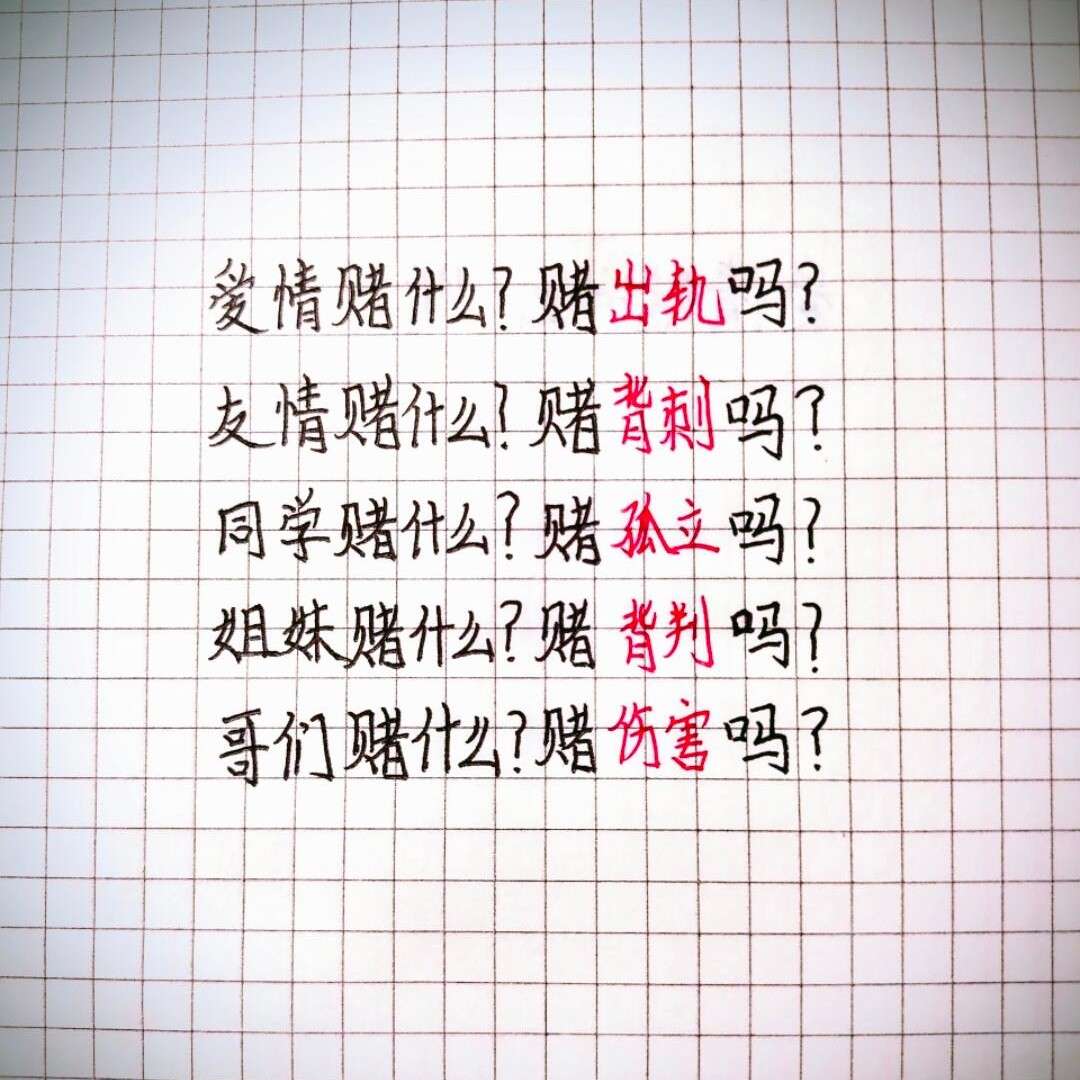 爱情赌什么?赌出轨吗?
友情赌什么?赌背刺吗?
同学赌什么?赌孤立吗?
姐妹赌什么?赌背判吗?
哥们赌什么?赌伤害吗?